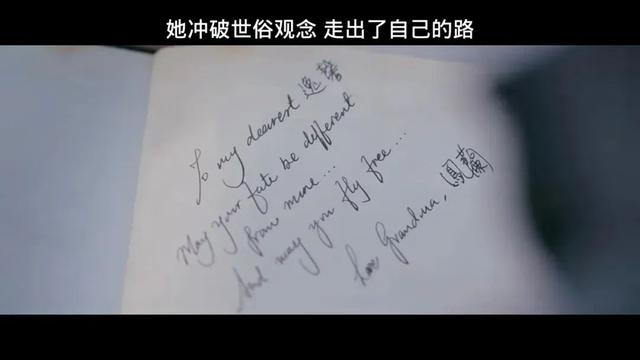 她冲破世俗观念 走出了自己的路
To my dearest 逸馨
May your fate be different
from mine...
And may you fly free...
Love Grandma, 凤兰